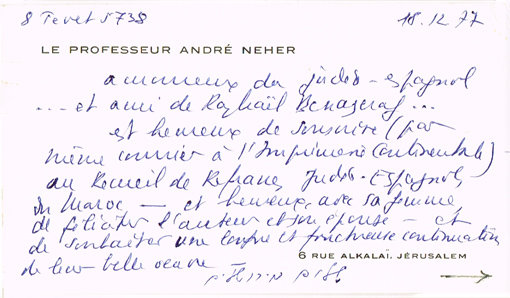 8 Tevet 5738 18.12.77
LE PROFESSEUR ANDRÉ NEHER
amoureux du judéo-espagnol
... et ami de Raphaël Benazeraf ...
est heureux de souscrire (par
même courrier à l'Imprimerie Continentale)
au Recueil de Refranes Judéo-Espagnols
du Maroc — et heureux, avec sa femme
de féliciter l'auteur et son épouse — et
de souhaiter une longue et fructueuse continuation
de leur belle oeuvre
6 RUE ALKALAÏ, JÉRUSALEM